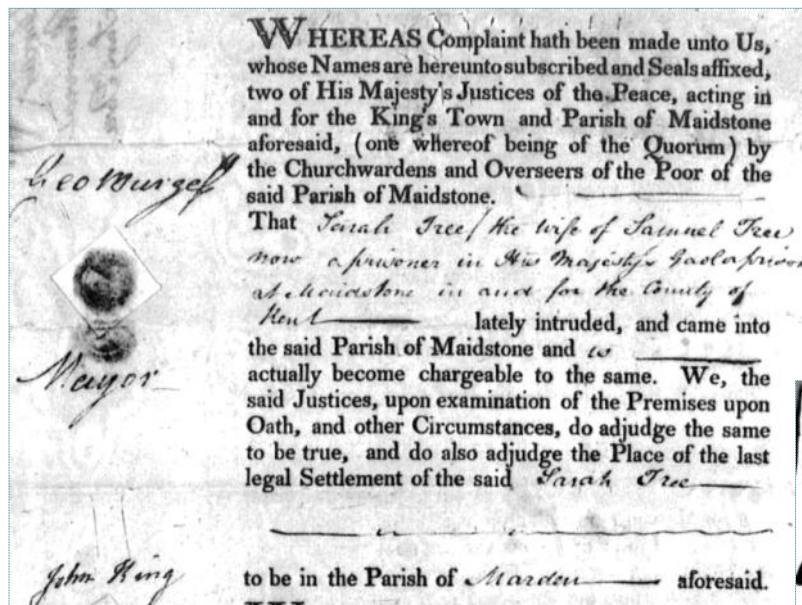 WHEREAS Complaint hath been made unto Us,
whose Names are hereunto subscribed and Seals affixed,
two of His Majesty's Justices of the Peace, acting in
and for the King's Town and Parish of Maidstone
aforesaid, (one whereof being of the Quorum) by
the Churchwardens and Overseers of the Poor of the
said Parish of Maidstone.
That Sarah Tree (the wife of Samuel Tree
now a prisoner in His Majesty's Gaol a prison
at Maidstone in and for the County of
Kent lately intruded, and came into
the said Parish of Maidstone and is
actually become chargeable to the same. We, the
said Justices, upon examination of the Premises upon
Oath, and other Circumstances, do adjudge the same
to be true, and do also adjudge the Place of the last
legal Settlement of the said Sarah Tree
to be in the Parish of Marden aforesaid.
Geo Burgess
Mayor
John King